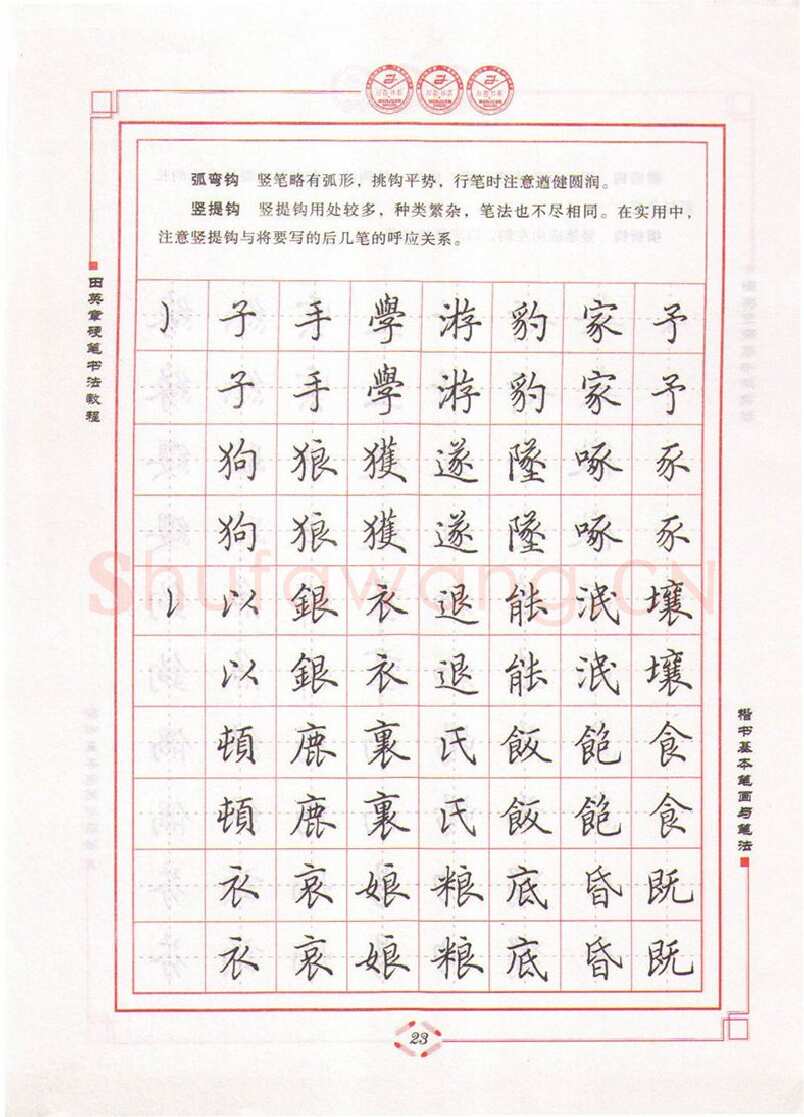 弧弯钩 竖笔略有弧形，挑钩平势，行笔时注意遒健圆润。
竖提钩 竖提钩用处较多，种类繁杂，笔法也不尽相同。在实用中，
注意竖提钩与将要写的后几笔的呼应关系。
田英章硬笔书法教程
子手學游豹家予
子手學游豹家予
狗狼獲遂墜啄豕
狗狼獲遂墜啄豕
Shufawang.CN
以銀衣退能泯壤
以銀衣退能泯壤
頓鹿裏氏飯飽食
頓鹿裏氏飯飽食
衣哀娘粮底昏既
衣哀娘粮底昏既
楷书基本笔画与笔法
23